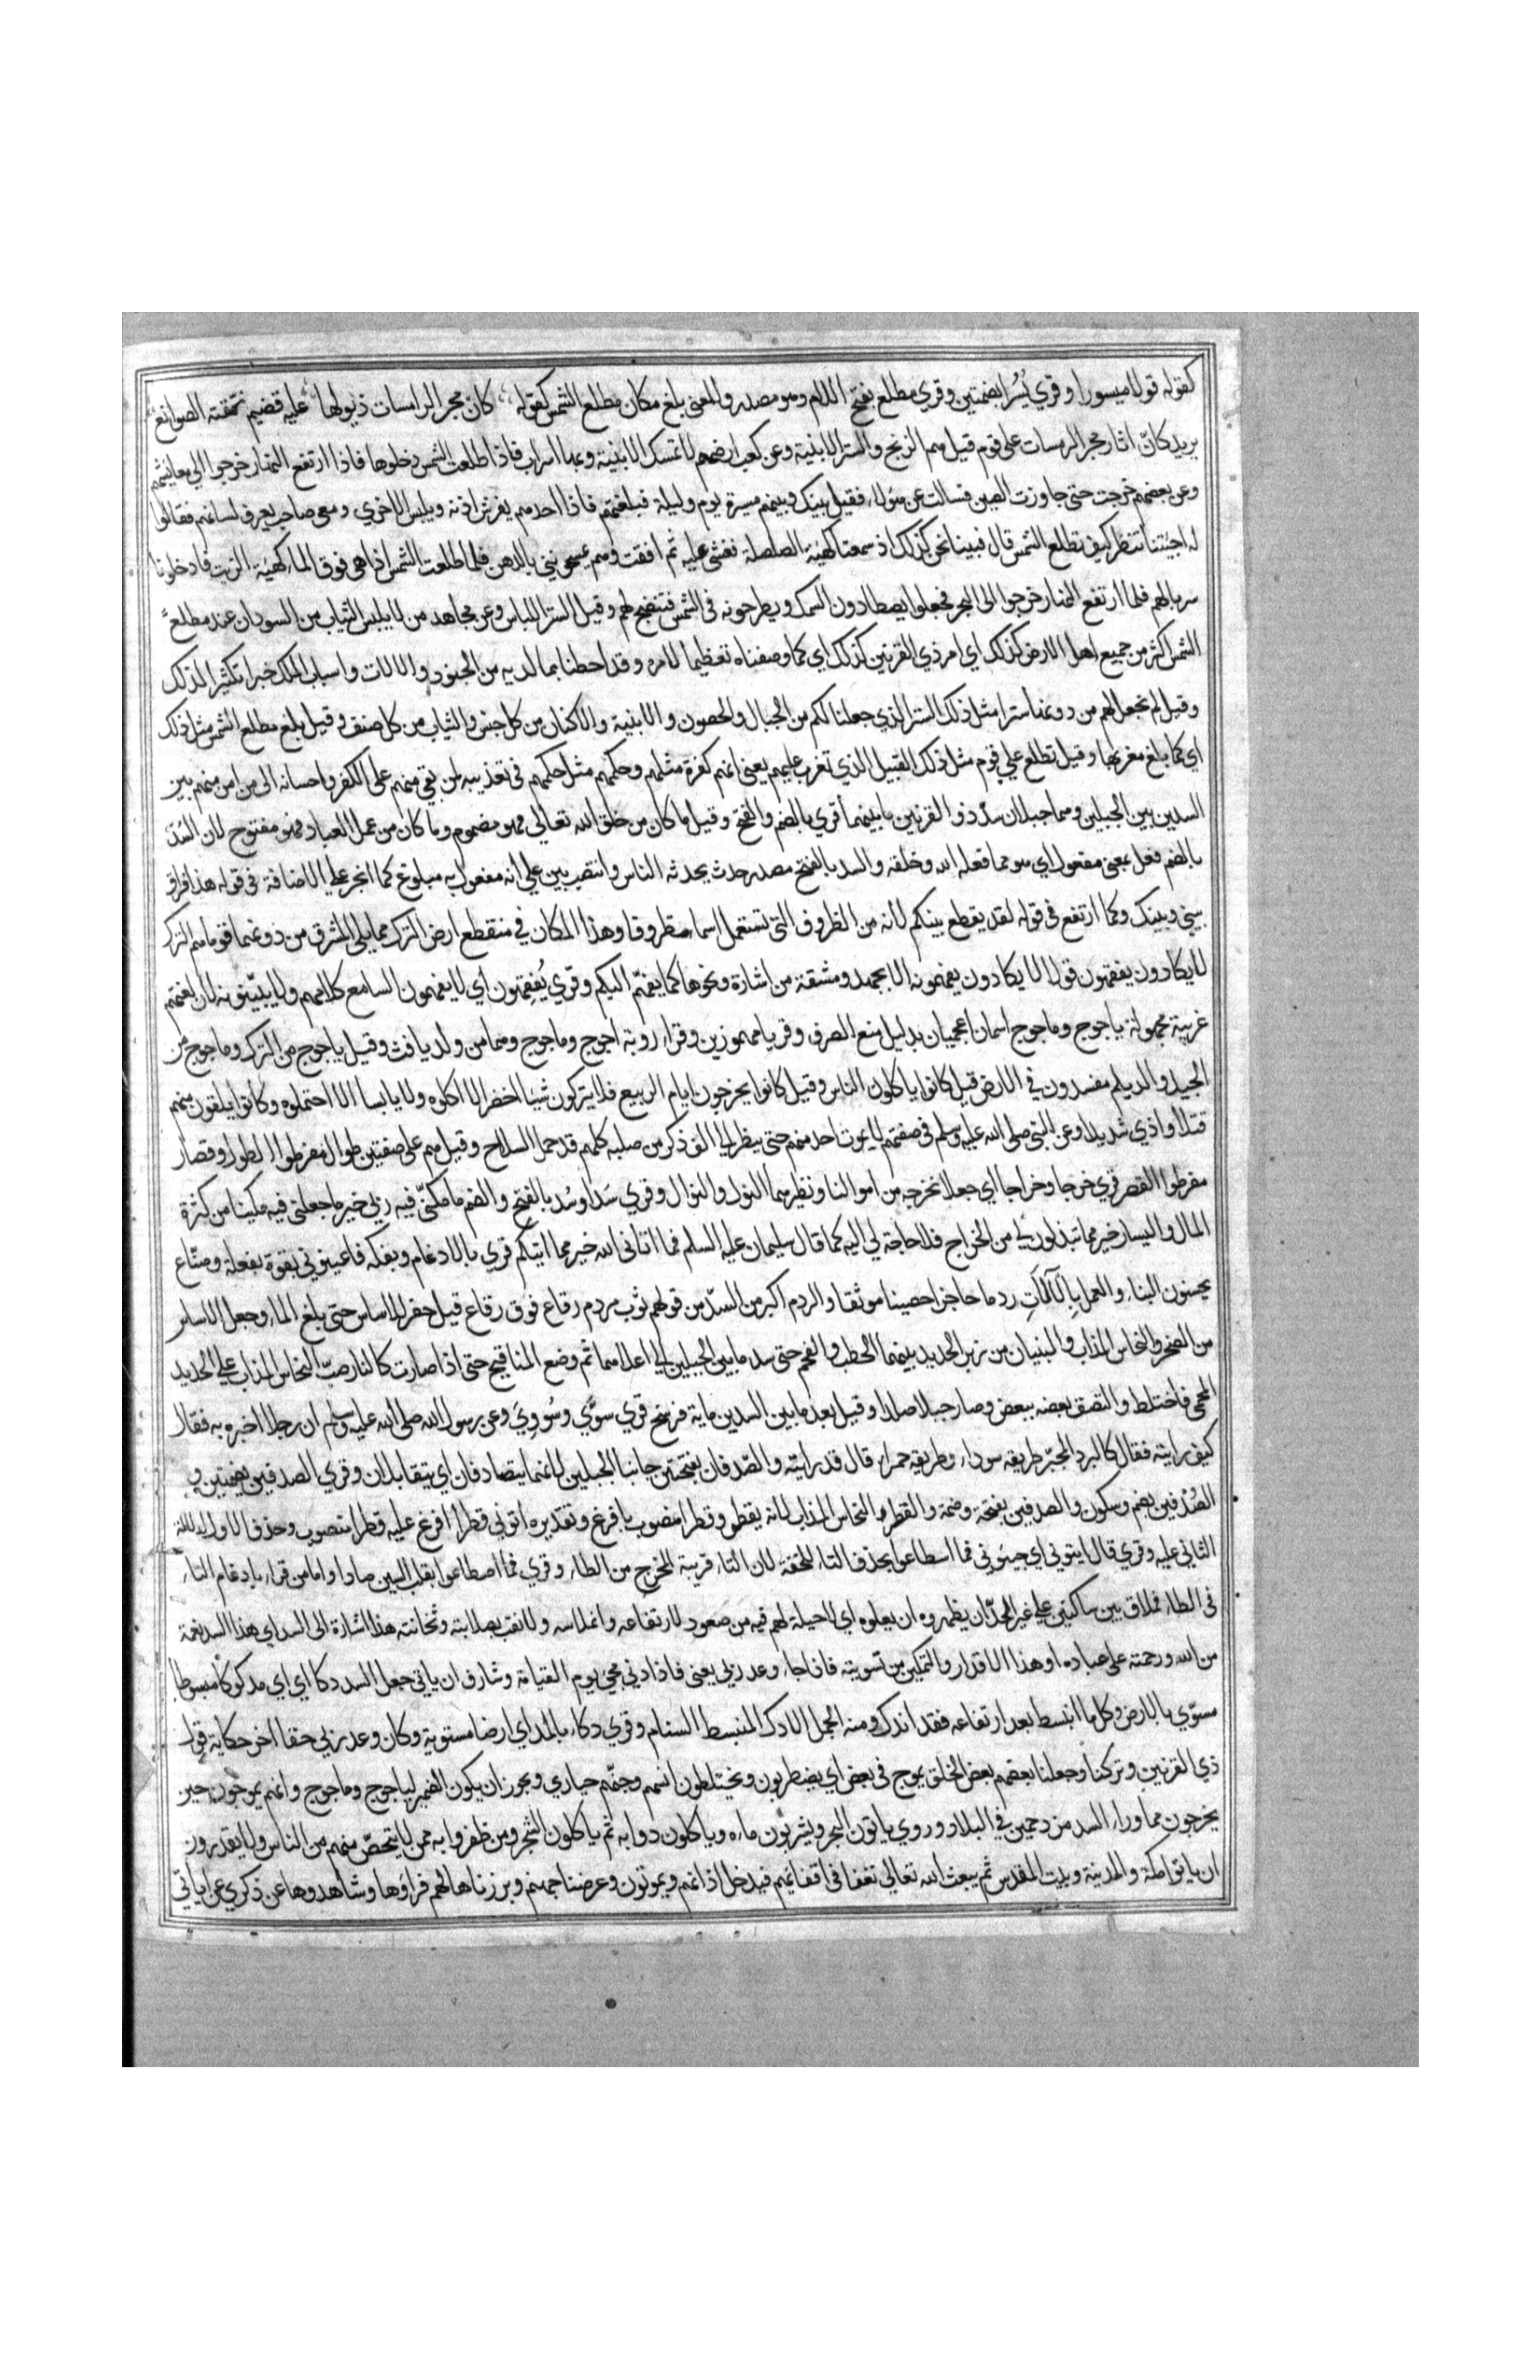 كقوله قولا ميسورا وقري يُسُرا بضمتين وقري مطلع بفتح اللام وهو مصدر والمعنى بلغ مكان مطلع الشمس كقوله كان مجر الرامسات ذيولها عليه قضيم نمقته الصوانع
يريد كانّ اثار مجر الرمسات على قوم قيل هم الزنج والستر الابنية وعن كعب ارضهم لا تمسك الابنية وبها اسراب فاذا طلعت الشمس دخلوها فاذا ارتفع النهار خرجوا الى معايشهم
وعن بعضهم خرجت حتى جاوزت الصين فسالت عن هؤلاء فقيل بينك وبينهم مسيرة يوم وليلة فبلغتهم فاذا احدهم يفرش اذنه ويلبس الاخري ومعي صاحب يعرف لسانهم فقالوا
له اجيتنا تنظر كيف تطلع الشمس قال فبينا نحن كذلك اذ سمعنا كهيئة الصلصلة فغشى عليه ثم افقت وهم يمسحونني بالدهن فلما طلعت الشمس اذا هي فوق الماء كهيئة الزيت فادخلونا
سربا لهم فلما ارتفع النهار خرجوا الى البحر فجعلوا يصطادون السمك ويطرحونه في الشمس فتنضج لهم وقيل الستر اللباس وعن مجاهد من لا يلبس الثياب من السودان عند مطلع
الشمس اكثر من جميع اهل الارض كذلك اي امر ذي القرنين كذلك اي كما وصفناه تعظيما لامره وقد احطنا بما لديه من الجنود والالات واسباب الملك خبرا تكثيرا لذلك
وقيل لم نجعل لهم من دونها سترا مثل ذلك الستر الذي جعلنا لكم من الجبال والحصون والابنية والاكنان من كل جنس والثياب من كل صنف وقيل بلغ مطلع الشمس مثل ذلك
اي كما بلغ مغربها وقيل تطلع على قوم مثل ذلك القبيل الذي تغرب عليهم يعني انهم كفرة مثلهم وحكمهم مثل حكمهم في تعذيبه لمن بقي منهم على الكفر واحسانه الى من امن منهم بين
السدين بين الجبلين وهما جبلان سدّ ذو القرنين ما بينهما قري بالضم والفتح وقيل ما كان من خلق الله تعالى فهو مضموم وما كان من عمل العباد فهو مفتوح لان السُدّ
بالضم فعل بمعنى مفعول اي هو مما فعله الله وخلقه والسد بالفتح مصدر حدث يحدثه الناس وانتصب بين على انه مفعول به مبلوغ كما انجر على الاضافة في قوله هذا فراق
بيني وبينك وكما ارتفع في قوله لقد يقطع بينكم لانه من الظروف التي تستعمل اسما وظروفا وهذا المكان في منقطع ارض الترك مما يلي المشرق من دونهما قوما هم الترك
لا يكادون يفقهون قولا لا يكادون يفهمونه الا بجهد ومشقة من اشارة ونحوها كما يفهم البكم وقري يُفقِهون اي لا يفهمون السامع كلامهم ولا يبيّنونه لان لغتهم
غريبة مجهولة ياجوج وماجوج اسمان اعجميان بدليل منع الصرف وقريا مهموزين وقرا روبة اجوج وماجوج وهما من ولد يافث وقيل ياجوج من الترك وماجوج من
الجيل والديلم مفسدون في الارض قيل كانوا ياكلون الناس وقيل كانوا يخرجون ايام الربيع فلا يتركون شيئا اخضر الا اكلوه ولا يابسا الا احتملوه وكانوا يلقون منهم
قتلا واذي شديدا وعن النبي صلى الله عليه وسلم في صفتهم لا يموت احد منهم حتى ينظر الى الف ذكر من صلبه كلهم قد حمل السلاح وقيل هم على صفتين طوال مفرطوا الطول وقصار
مفرطوا القصر قري خرجا وخراجا اي جعلا نخرجه من اموالنا ونظيرهما النول والنوال وقري سَدا وسُدا بالفتح والضم ما مكنّي فيه ربي خير ما جعلني فيه مكينا من كثرة
المال واليسار خير مما تبذلون لي من الخراج فلا حاجة لي اليه كما قال سليمان عليه السلم فما اتاني الله خير مما اتيكم قري بالادغام وبفكه فاعينوني بقوة بفعلة وصنّاع
يحسنون البناء والعمل بِالآلَاتِ ردما حاجزا حصينا موثقا والردم اكبر من السدّ من قولهم ثوب مردم رقاع فوق رقاع قيل حفر للاساس حتى بلغ الماء وجعل الاساس
من الصخر والنحاس المذاب والبنيان من زبر الحديد بينهما الحطب والفحم حتى سد ما بين الجبلين الى اعلاهما ثم وضع المنافيخ حتى اذا صارت كالنار صبّ النحاس المذاب على الحديد
المحمى فاختلط والتصق بعضه ببعض وصار جبلا صلدا وقيل بعد ما بين السدين ماية فرسخ قري سوّي وسُووِيَ وعن رسول الله صلى الله عليه وسلم ان رجلا اخبره به فقال
كيف رايته فقال كالبرد المحبّر طريقه سوداء وطريقه حمراء قال قد رايته والصّدفان بفتحتين جانبا الجبلين لانهما يتصادفان اي يتقابلان وقري الصدفين بضمتين و
الصُدْفين بضم وسكون والصدفين بفتحة وضمة والقطر النحاس المذاب لانه يقطر وقطرا منصوب بافرغ وتقديره اتوني قطرا افرغ عليه قطرا منصوب وحذف الاول لدلالة
الثاني عليه وقري قال ايتوني اي جيئوني فما اسطاعوا بحذف التاء للخفة لان التاء قريبة المخرج من الطاء وقري فما اصطاعوا بقلب السين صادا واما من قراء بادغام التاء
في الطاء فملاق بين ساكنين على غير الحدّ ان يظهروه ان يعلوه اي لا حيلة لهم فيه من صعود لارتفاعه وانملاسه ولا نقب لصلابته وثخانته هذا اشارة الى السد اي هذا السد نعمة
من الله ورحمة على عباده او هذا الاقدار والتمكين من تسويته فاذا جاء وعد ربي يعني فاذا دني مجئ يوم القيامة وشارف ان ياتي جعل السد دكا اي اي مدكوكا مبسوطا
مسوّي بالارض وكل ما انبسط بعد ارتفاعه فقد اندك ومنه الجمل الادك المنبسط السنام وقري دكاء بالمد اي ارضا مستوية وكان وعد ربي حقا اخر حكاية قول
ذي القرنين وتركنا وجعلنا بعضهم بعض الخلق يموج في بعض اي يضطربون ويختلطون انسهم وجنّهم حياري ويجوز ان يكون الضمير لياجوج وماجوج وانهم يموجون حين
يخرجون مما وراء السد مزدحمين في البلاد وروي ياتون البحر ويشربون ماءه وياكلون دوابه ثم ياكلون الشجر ومن ظفروا به ممن لا يتحصّن منهم من الناس ولا يقدرون
ان ياتوا مكة والمدينة وبيت المقدس ثم يبعث الله تعالى نغفا في اقفائهم فيدخل اذانهم ويموتون وعرضنا جهنم وبرزناها لهم فراؤها وشاهدوها عن ذكري عن اياتي